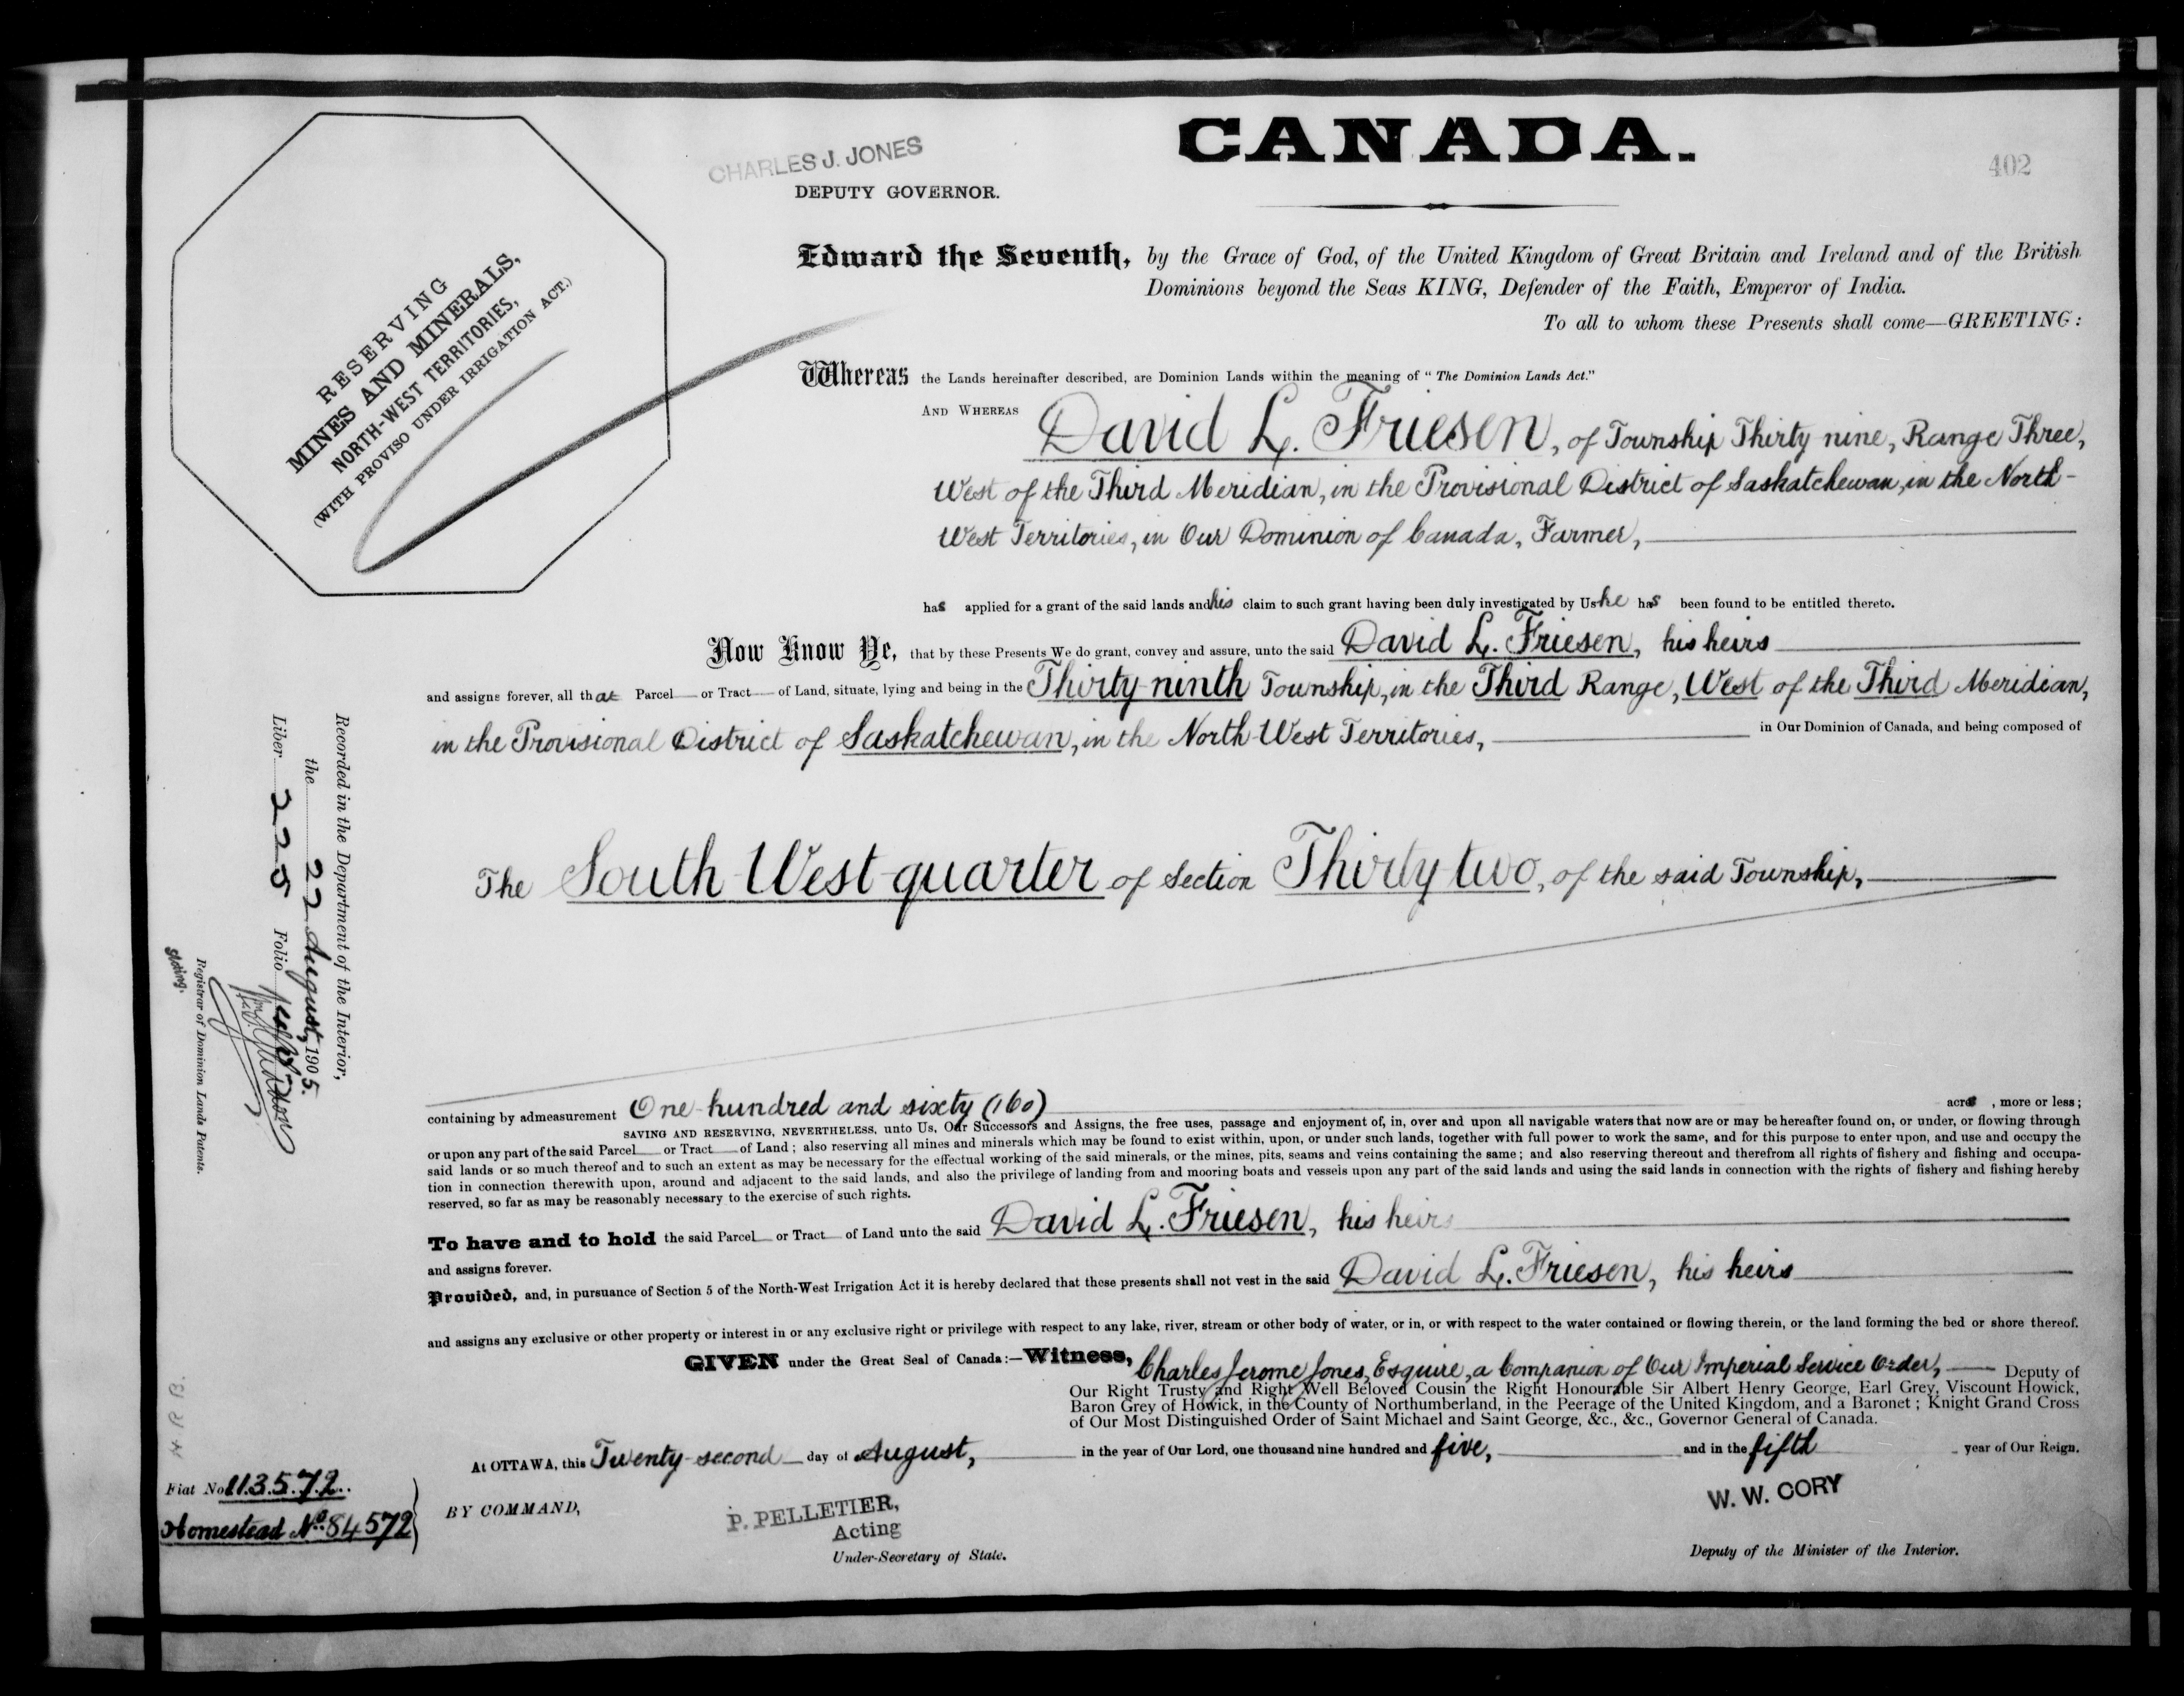 CANADA.
402
CHARLES J. JONES
DEPUTY GOVERNOR.
RESERVING
MINES AND MINERALS,
NORTH-WEST TERRITORIES,
(WITH PROVISO UNDER IRRIGATION ACT.)
Edward the Seventh, by the Grace of God, of the United Kingdom of Great Britain and Ireland and of the British
Dominions beyond the Seas KING, Defender of the Faith, Emperor of India.
To all to whom these Presents shall come—GREETING:
Whereas the Lands hereinafter described, are Dominion Lands within the meaning of "The Dominion Lands Act."
AND WHEREAS David L. Friesen, of Township Thirty nine, Range Three,
West of the Third Meridian, in the Provisional District of Saskatchewan, in the North-
West Territories, in Our Dominion of Canada, Farmer,
has applied for a grant of the said lands and his claim to such grant having been duly investigated by Us he has been found to be entitled thereto.
Now Know Ye, that by these Presents We do grant, convey and assure, unto the said David L. Friesen, his heirs
and assigns forever, all that Parcel or Tract of Land, situate, lying and being in the Thirty-ninth Township, in the Third Range, West of the Third Meridian,
in the Provisional District of Saskatchewan, in the North-West Territories, in Our Dominion of Canada, and being composed of
The South West quarter of Section Thirty two, of the said Township,
containing by admeasurement One hundred and sixty (160) acres, more or less;
SAVING AND RESERVING, NEVERTHELESS, unto Us, Our Successors and Assigns, the free uses, passage and enjoyment of, in, over and upon all navigable waters that now are or may be hereafter found on, or under, or flowing through
or upon any part of the said Parcel or Tract of Land; also reserving all mines and minerals which may be found to exist within, upon, or under such lands, together with full power to work the same, and for this purpose to enter upon, and use and occupy the
said lands or so much thereof and to such an extent as may be necessary for the effectual working of the said minerals, or the mines, pits, seams and veins containing the same; and also reserving thereout and therefrom all rights of fishery and fishing and occupa-
tion in connection therewith upon, around and adjacent to the said lands, and also the privilege of landing from and mooring boats and vessels upon any part of the said lands and using the said lands in connection with the rights of fishery and fishing hereby
reserved, so far as may be reasonably necessary to the exercise of such rights.
To have and to hold the said Parcel or Tract of Land unto the said David L. Friesen, his heirs
and assigns forever.
Provided, and, in pursuance of Section 5 of the North-West Irrigation Act it is hereby declared that these presents shall not vest in the said David L. Friesen, his heirs
and assigns any exclusive or other property or interest in or any exclusive right or privilege with respect to any lake, river, stream or other body of water, or in, or with respect to the water contained or flowing therein, or the land forming the bed or shore thereof.
GIVEN under the Great Seal of Canada:—Witness, Charles Jerome Jones, Esquire, a Companion of Our Imperial Service Order, Deputy of
Our Right Trusty and Right Well Beloved Cousin the Right Honourable Sir Albert Henry George, Earl Grey, Viscount Howick,
Baron Grey of Howick, in the County of Northumberland, in the Peerage of the United Kingdom, and a Baronet; Knight Grand Cross
of Our Most Distinguished Order of Saint Michael and Saint George, &c., &c., Governor General of Canada.
At OTTAWA, this Twenty-second day of August, in the year of Our Lord, one thousand nine hundred and five, and in the fifth year of Our Reign.
BY COMMAND,
P. PELLETIER,
Acting
Under-Secretary of State.
W. W. CORY
Deputy of the Minister of the Interior.
Recorded in the Department of the Interior,
the 22 August, 1905.
Liber 225 Folio
Registrar of Dominion Lands Patents.
Fiat No 113572
Homestead No. 84572